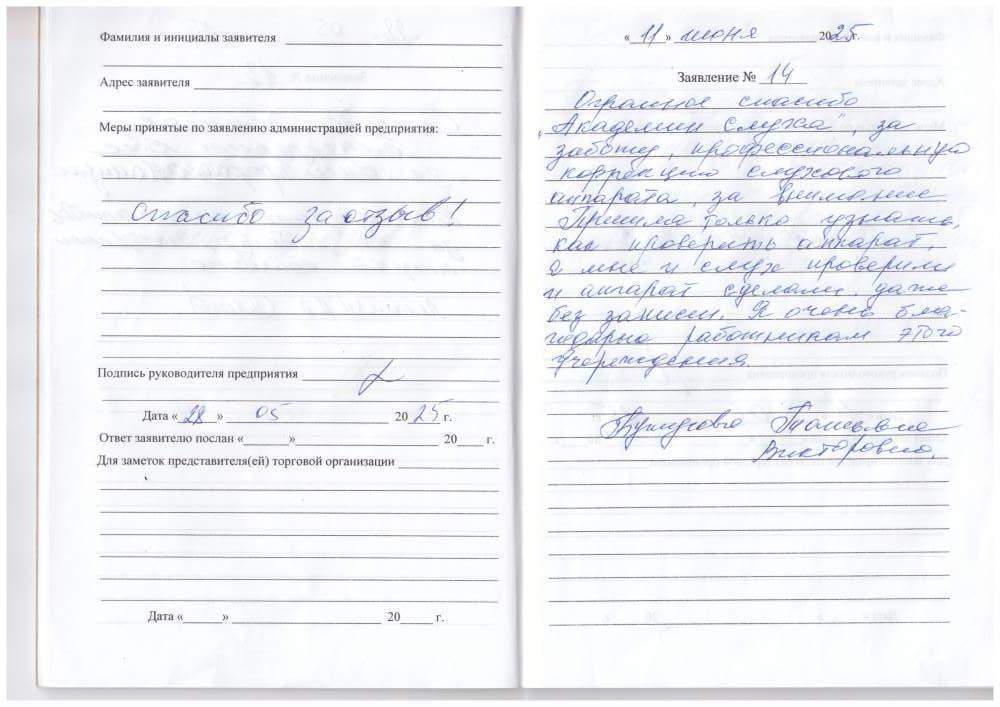 Фамилия и инициалы заявителя
Адрес заявителя
Меры принятые по заявлению администрацией предприятия:
Спасибо за отзыв!
Подпись руководителя предприятия
Дата «28» 05 2025 г.
Ответ заявителю послан «______»____________ 20____ г.
Для заметок представителя(ей) торговой организации
Дата «______» ____________ 20_____ г.
«11» июня 2025г.
Заявление № 14
Огромное спасибо
"Академии Слуха", за
заботу, профессиональную
коррекцию слухового
аппарата, за внимание
Пришла только узнать,
как проверить аппарат,
а мне и слух проверили
и аппарат сделали даже
без записи. Я очень бла-
годарна работникам этого
Учреждения.
Татьяна
Викторовна.